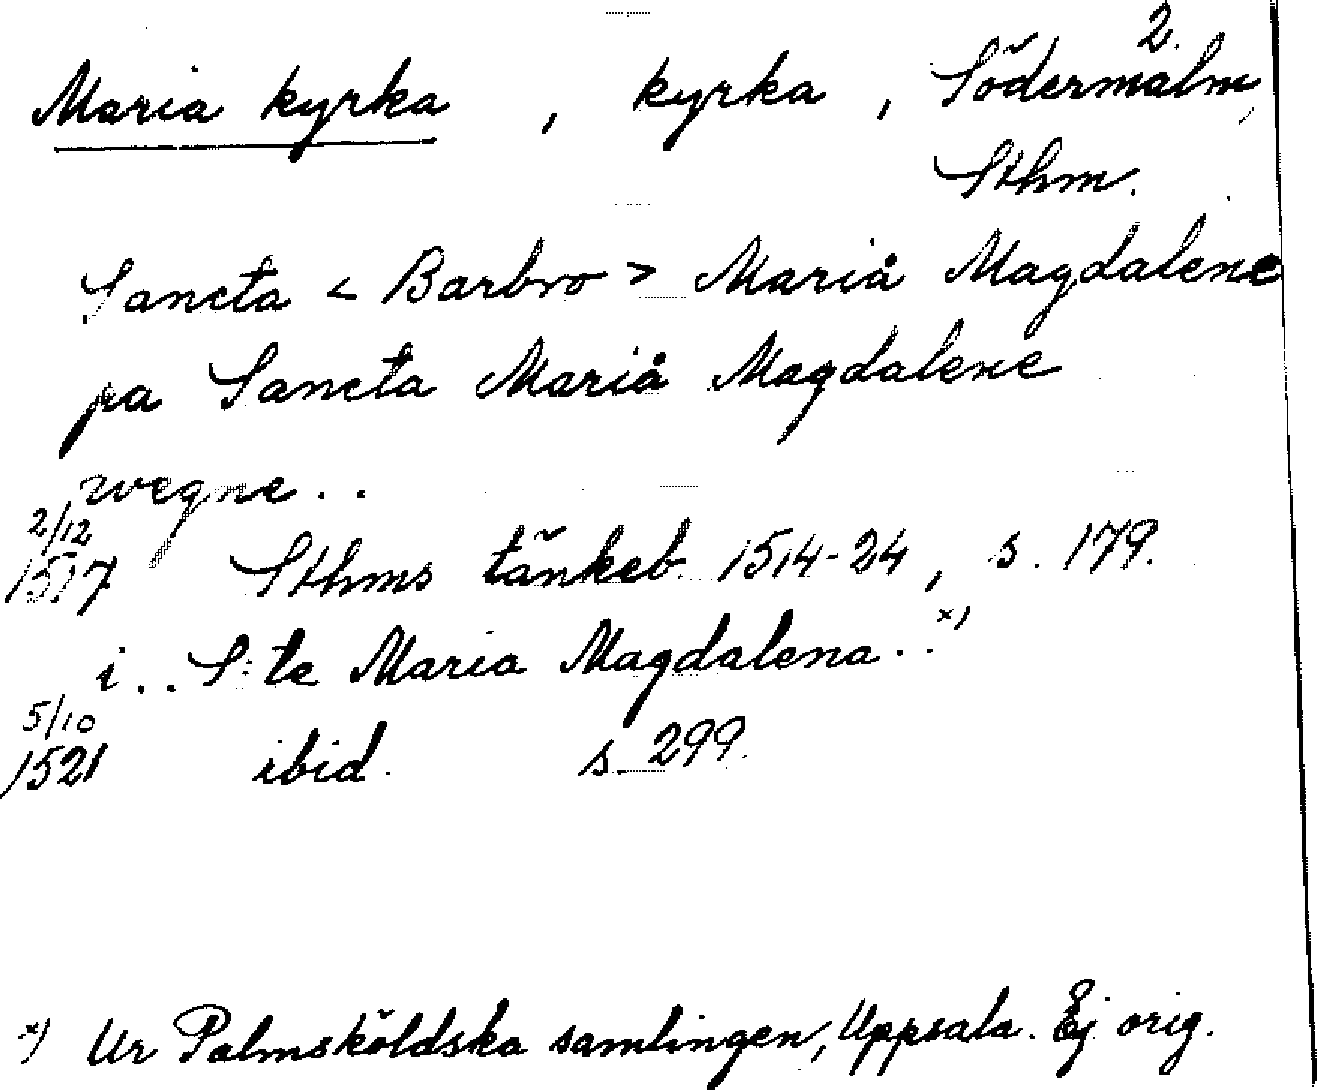 2.
Maria kyrka , kyrka , Södermalm,
Sthm.
Sancta < Barbro > Mariå Magdalene
pa Sancta Mariå Magdalene
wegne . .
2/12
1517 Sthms tänkeb. 1514-24, s. 179.
i . . S:te Maria Magdalena . . x)
5/10
1521 ibid. s. 299.
x) Ur Palmsköldska samlingen, Uppsala. Ej orig.